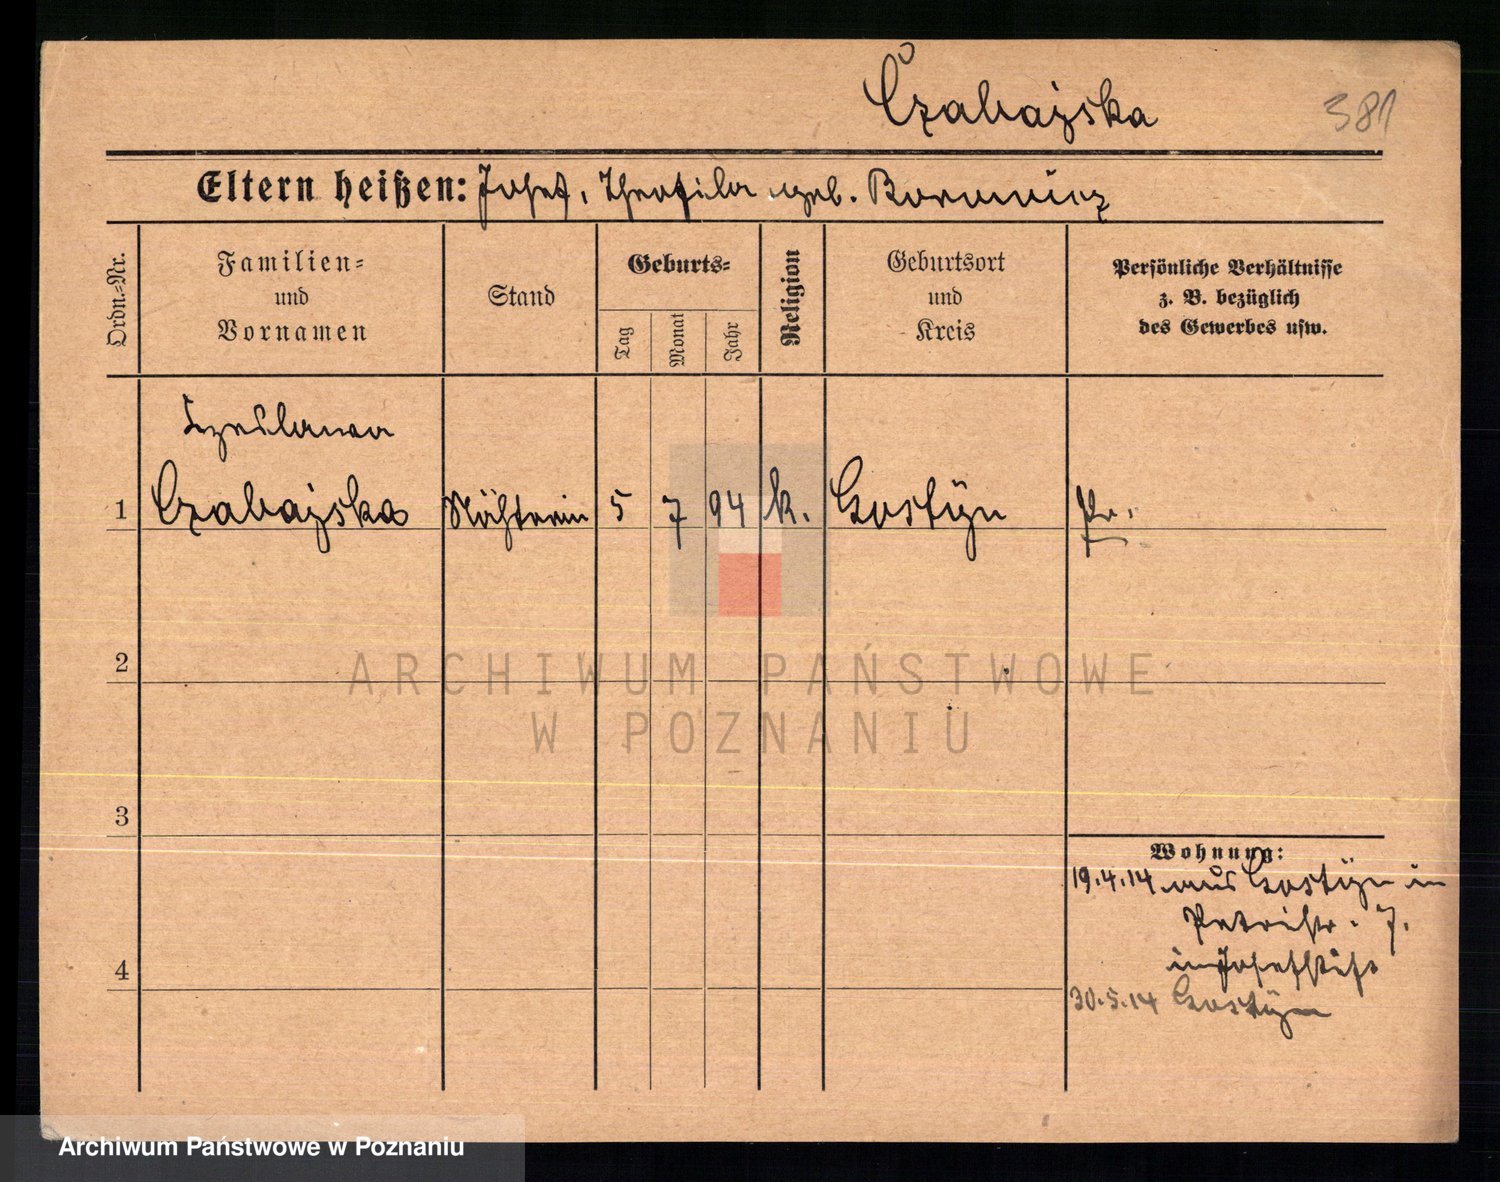 Czabajska 381
Eltern heißen: Josef, Theofila geb. Borowicz
Ordn.=Nr.
Familien=
und
Vornamen
Stand
Geburts=
Tag
Monat
Jahr
Religion
Geburtsort
und
Kreis
Persönliche Verhältnisse
z. B. bezüglich
des Gewerbes usw.
Czeslawa
1 Czabajska Nähterin 5 7 94 k. Gostyn Pr.
2
ARCHIWUM PAŃSTWOWE
W POZNANIU
3
Wohnung:
19.4.14 aus Gostyn in
Petristr. 7.
im Josefstift
4
30.5.14 Gostyn
Archiwum Państwowe w Poznaniu